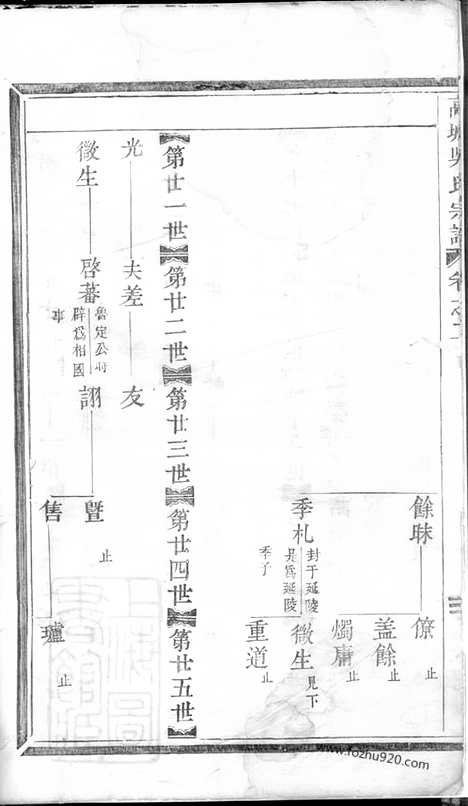 吳氏宗譜 卷之二
餘昧
僚 止
蓋餘 止
燭庸 止
季札 封于延陵是爲延陵季子
徵生 見下
重道 止
第廿一世 第廿二世 第廿三世 第廿四世 第廿五世
光 夫差 友
徵生 啓蕃 魯定公時辟爲相國事 詡
暨 止
售 瓐 止
www.fozhu920.com